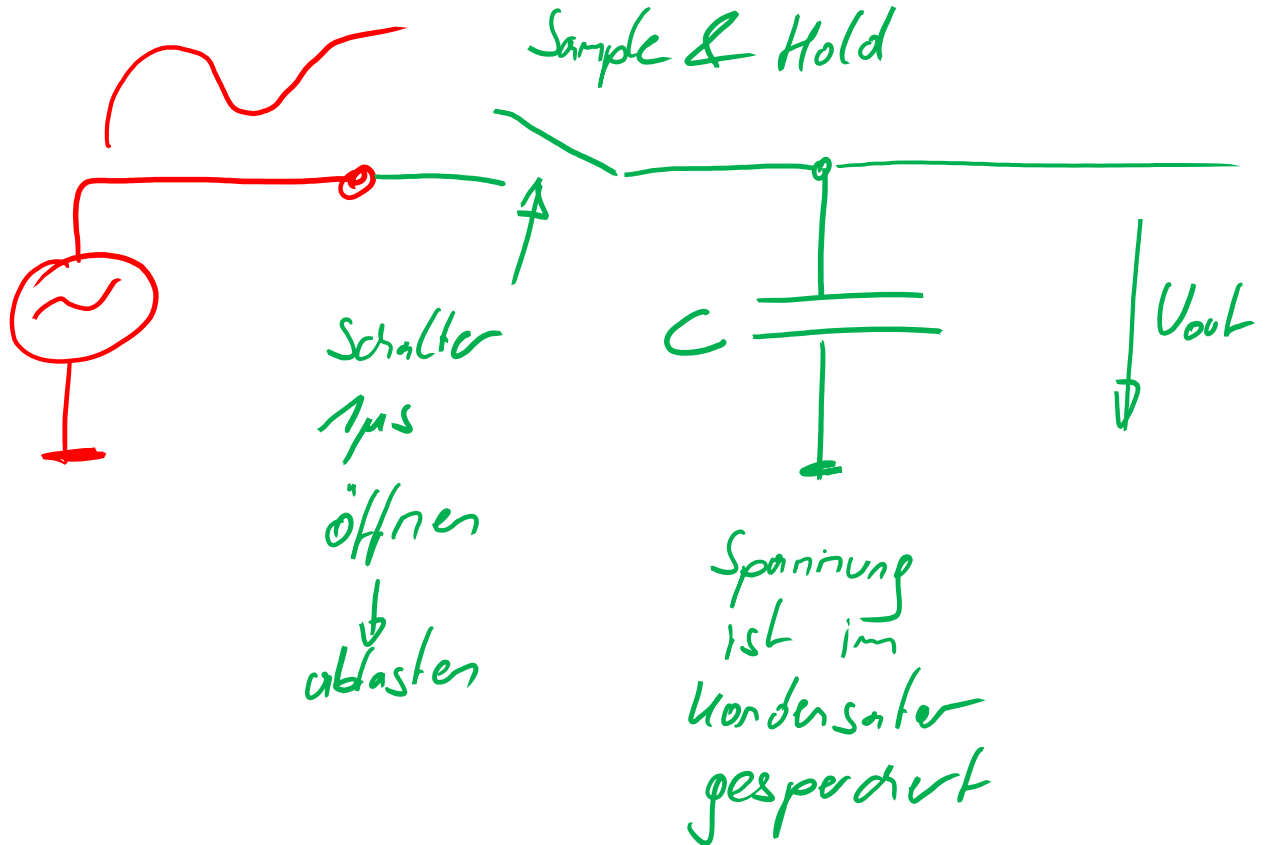 Sample & Hold
Schalter
1µs
öffnen
abtasten
C
Uout
Spannung
ist im
Kondensator
gespeichert